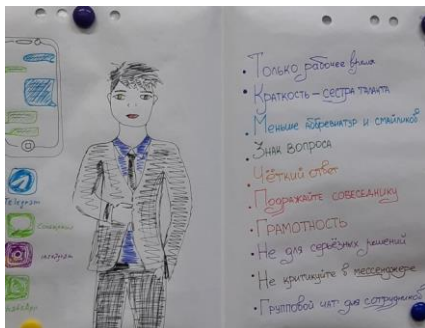 Telegram
Только рабочее время
Краткость – сестра таланта
Меньше аббревиатур и смайликов
Знак вопроса
Чёткий ответ
Подражайте собеседнику
Грамотность
Не для серьёзных решений
Не критикуйте в мессенджере
Групповой чат для сотрудников